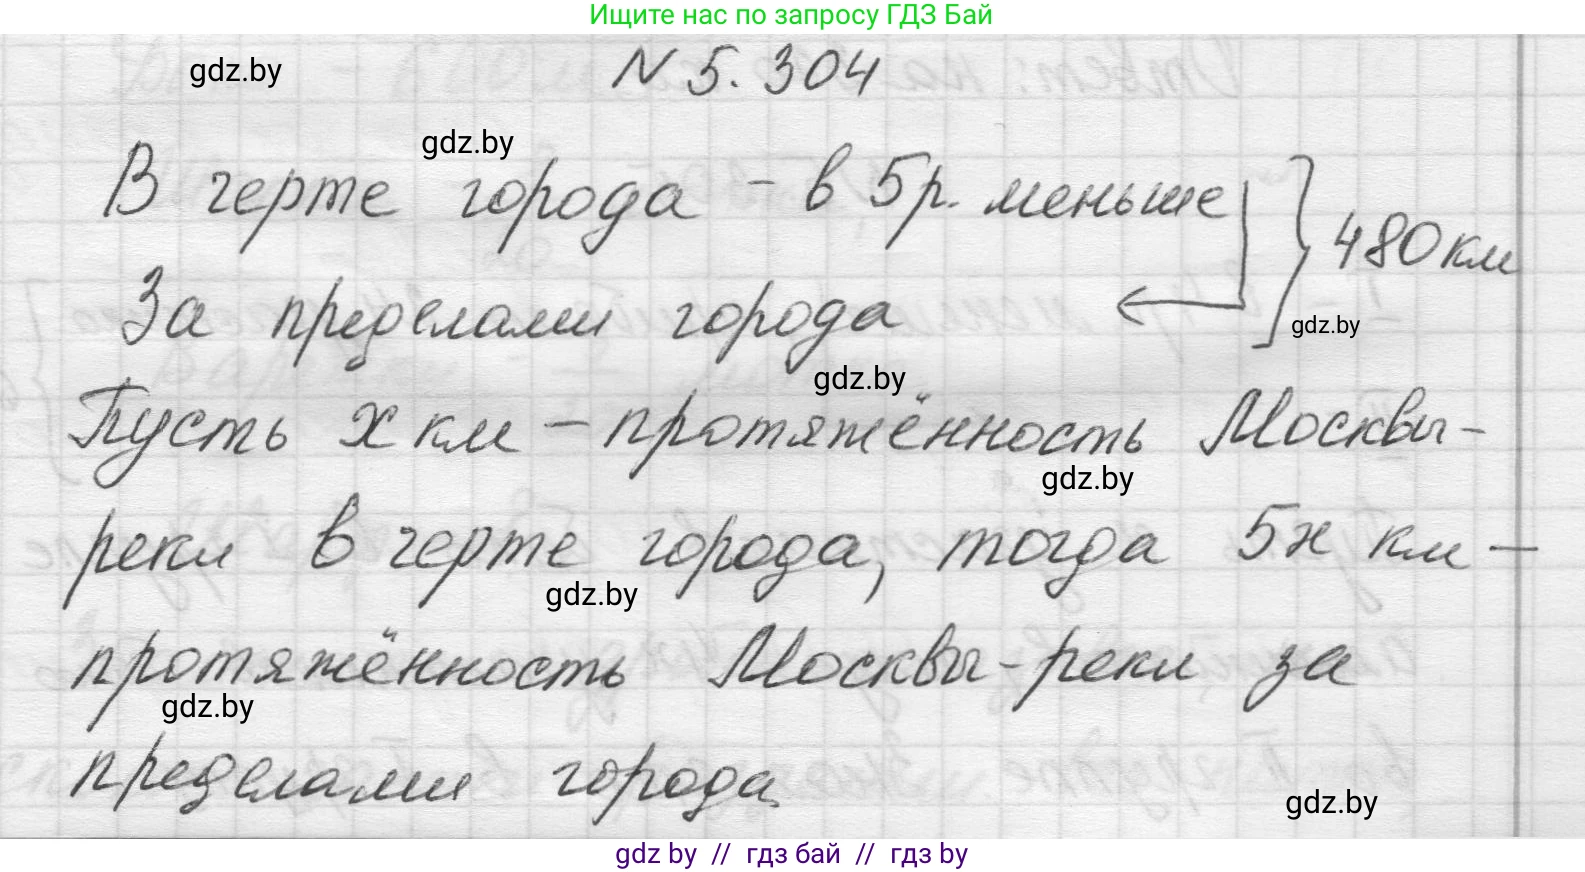 Ищите нас по запросу ГДЗ Бай
N 5. 304
gdz.by
gdz.by
В черте города - в 5 р. меньше
480 км
За пределами города
gdz.by
gdz.by
Пусть x км - протяжённость Москвы-
gdz.by
реки в черте города, тогда 5x км -
gdz.by
протяжённость Москвы-реки за
gdz.by
пределами города
gdz.by
gdz by // гдз бай // гдз by